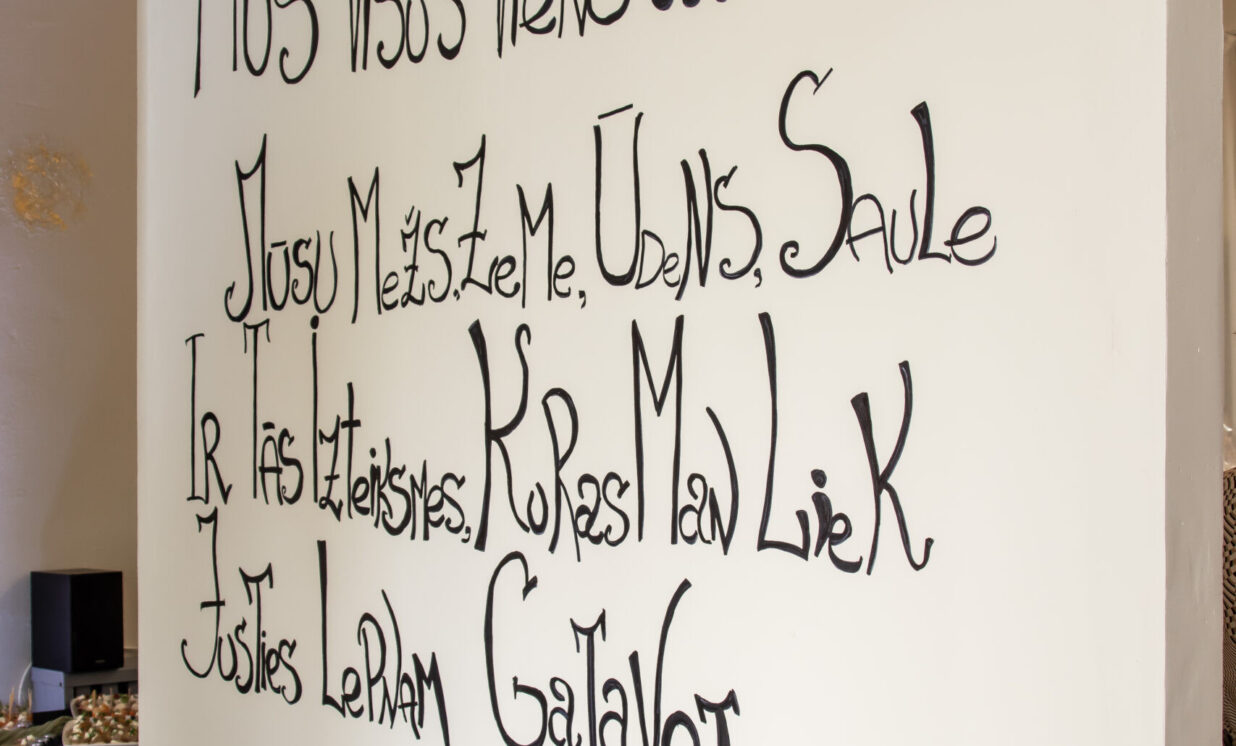 Mūs visus vieno...
Mūsu Mežs, Zeme, Ūdens, Saule
Ir Tās Izteiksmes, Kuras Man Liek
Justies Lepnam Gatavot